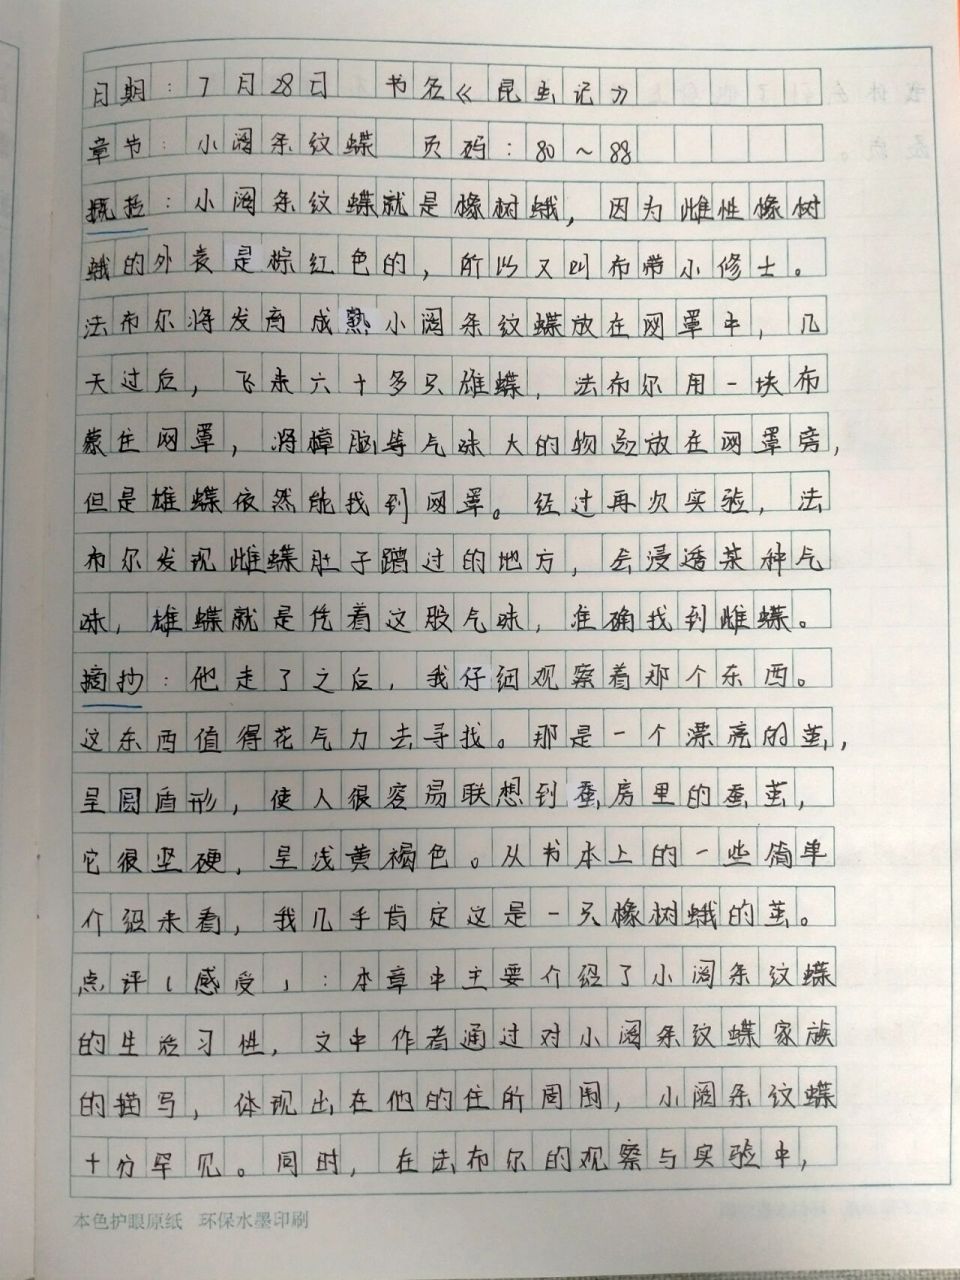 日期：7月28日 书名《昆虫记》
章节：小阔条纹蝶 页码：80~88
概括：小阔条纹蝶就是橡树蛾，因为雌性橡树
蛾的外表是棕红色的，所以又叫布带小修士。
法布尔将发育成熟小阔条纹蝶放在网罩中，几
天过后，飞来六十多只雄蝶，法布尔用一块布
蒙住网罩，将樟脑等气味大的物品放在网罩旁，
但是雄蝶依然能找到网罩。经过再次实验，法
布尔发现雌蝶肚子蹭过的地方，会浸透某种气
味，雄蝶就是凭着这股气味，准确找到雌蝶。
摘抄：他走了之后，我仔细观察着那个东西。
这东西值得花气力去寻找。那是一个漂亮的茧，
呈圆盾形，使人很容易联想到蚕房里的蚕茧，
它很坚硬，呈浅黄褐色。从书本上的一些简单
介绍来看，我几乎肯定这是一只橡树蛾的茧。
点评（感受）：本章中主要介绍了小阔条纹蝶
的生活习性，文中作者通过对小阔条纹蝶家族
的描写，体现出在他的住所周围，小阔条纹蝶
十分罕见。同时，在法布尔的观察与实验中，
本色护眼原纸 环保水墨印刷